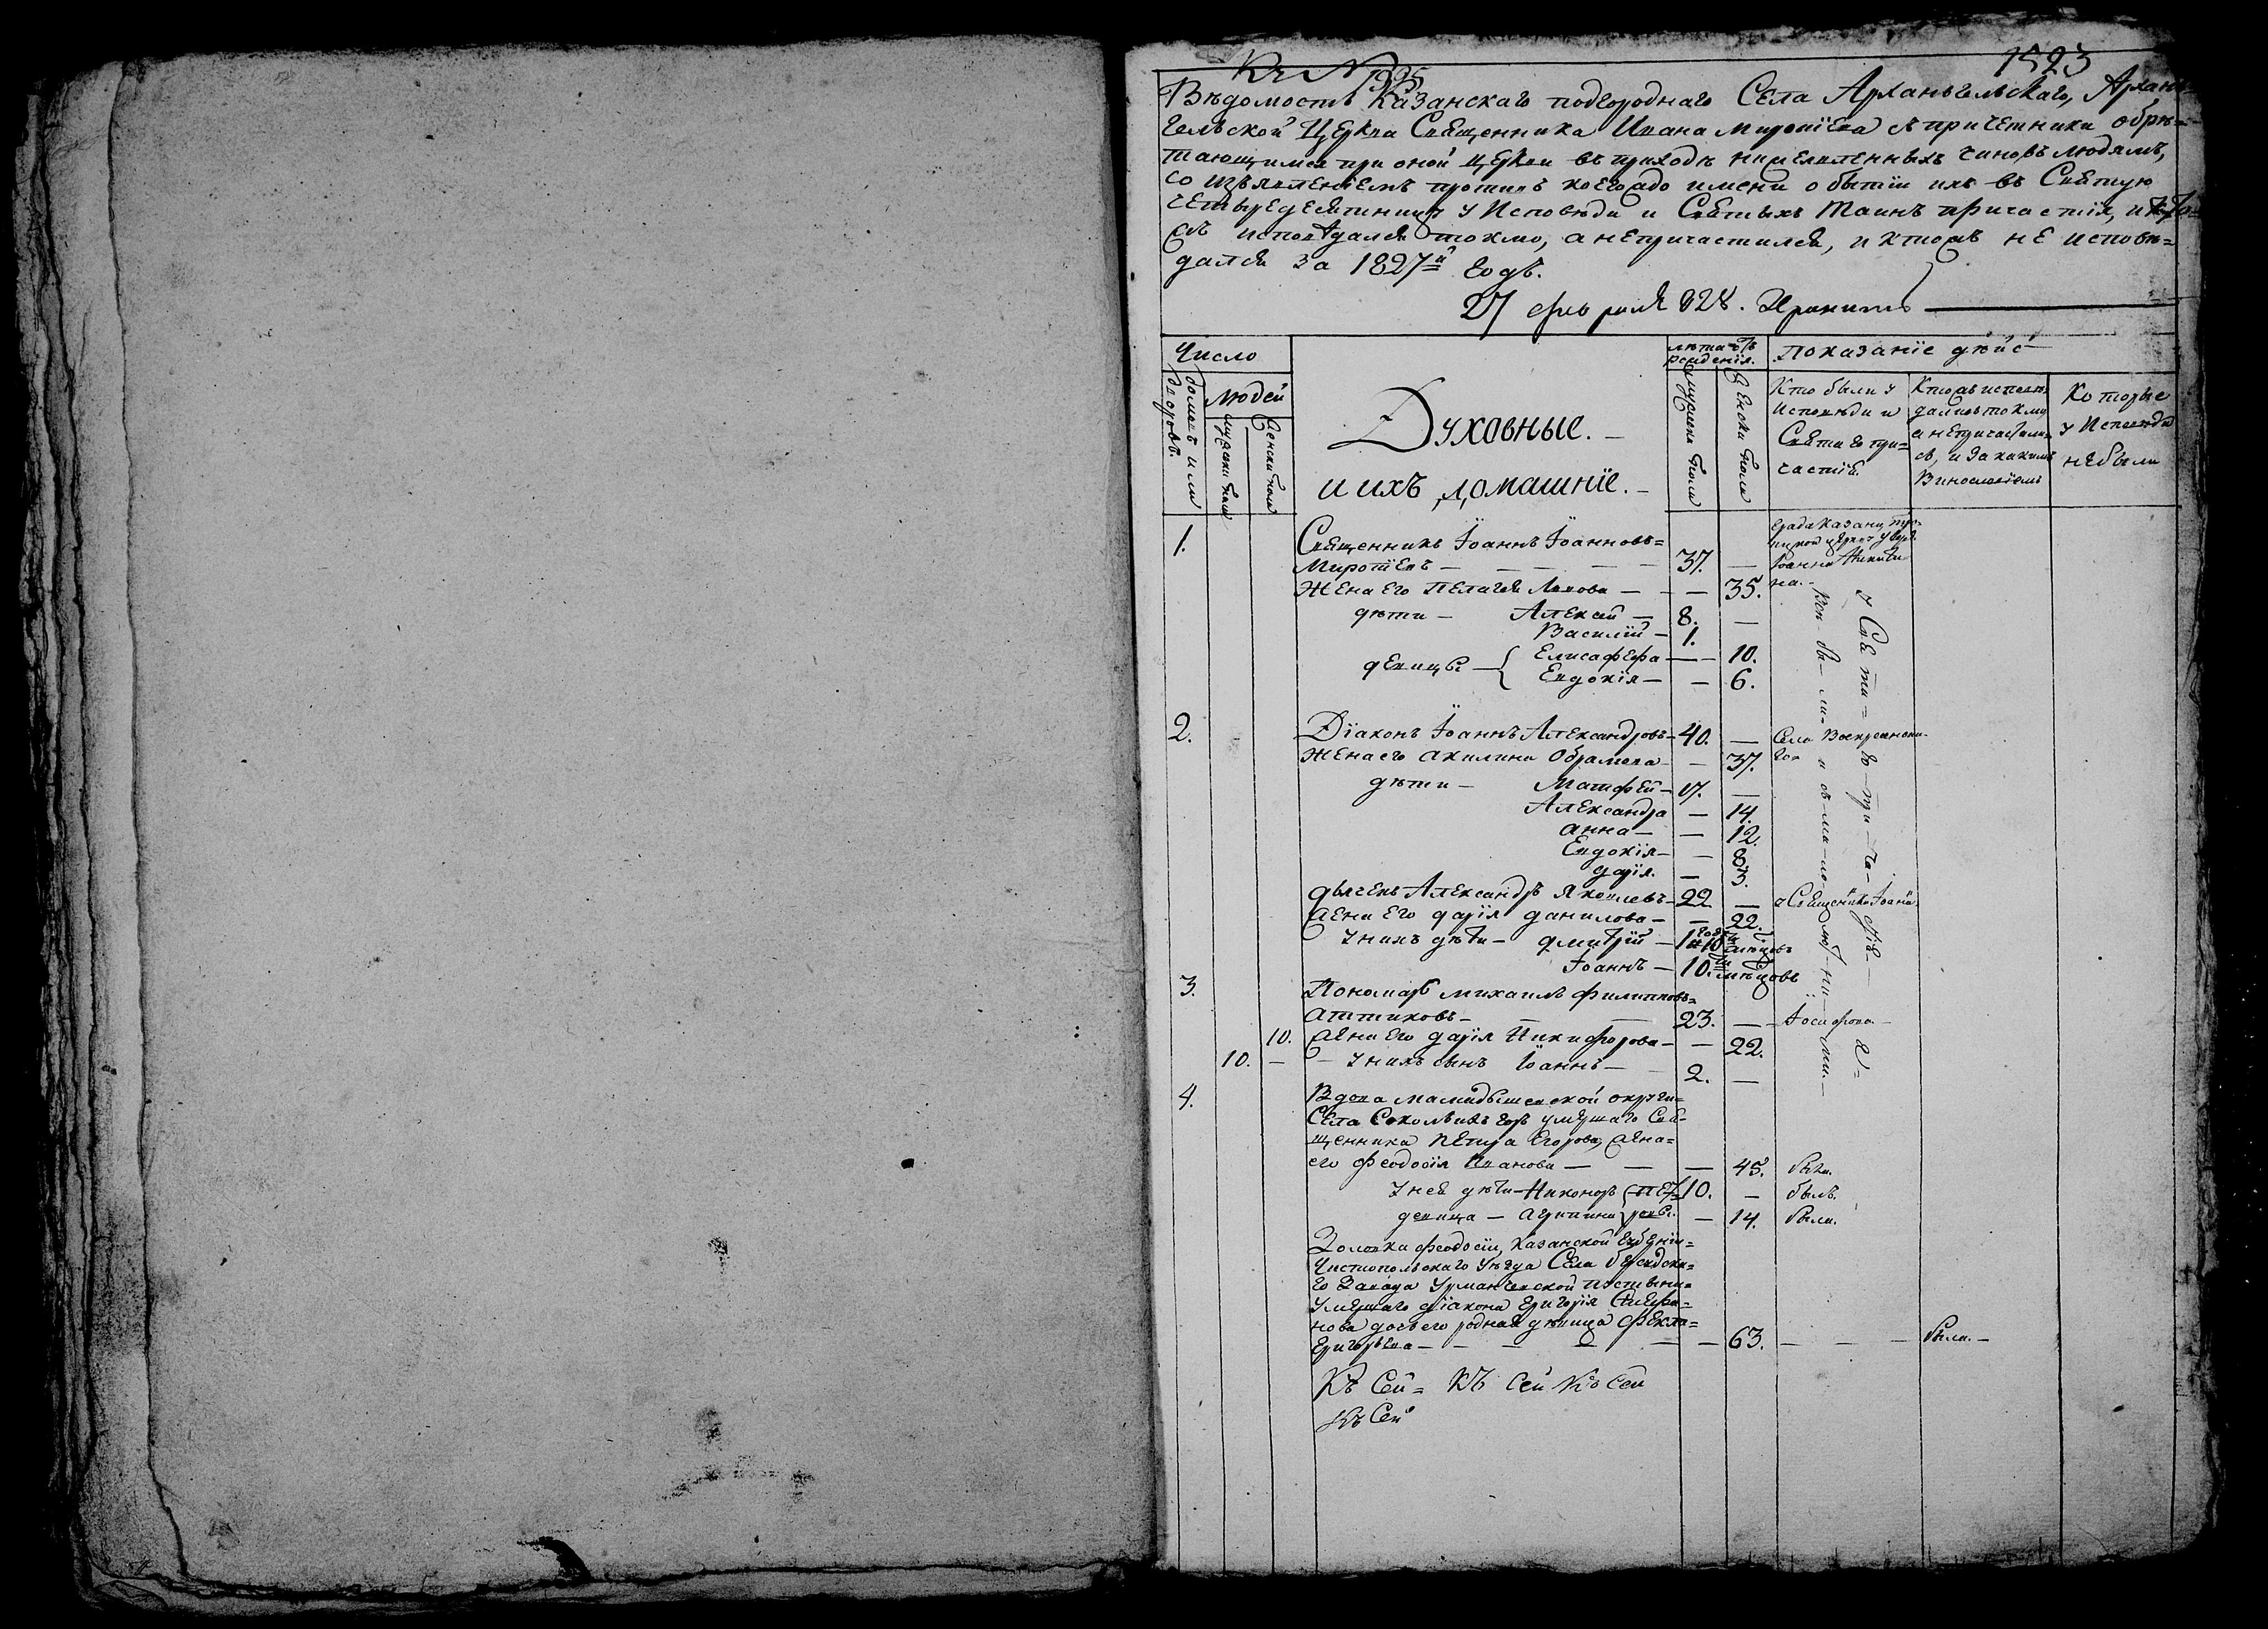 Къ № 1995
1523
Вѣдомость Казанскаго подгороднаго Села Архангельскаго, Архан=
гельской Церкви Священника Ивана Миропіева съ причетники обрѣ=
тающимся при оной церкви въ приходѣ чиновъ людямъ,
со изъявленіемъ противъ коегождо имени о бытіи ихъ въ Святую
четыредесятницу у Исповѣди и Святыхъ Таинъ причастія, и кто=
жъ исповѣдался токмо, а непричастился, и ктожъ не исповѣ=
дался за 1827й годъ.
27 февраля 828. Хранить
Число
домовъ или дворовъ.
людей
мужеска пола
женска пола
Духовные.
и ихъ домашніе.
лѣта отъ рожденія.
мужеска пола
женска пола
Показаніе дѣйс
Кто были у
Исповѣди и
Святаго при=
частія.
Ктожъ исповѣ
дались токмо
а непричастили
сь, и за какимъ
Винословіемъ
Которые
у Исповѣди
небыли
1. Священникъ Іоаннъ Іоанновъ=
Миропіевъ — 37. —
града Казани
церкви
Іоанна Никити
на.
Жена его Пелагея Львова — — 35.
дѣти — Алексѣй — 8. —
Василій — 1.
девицы — Елисафефа — — 10.
Евдокія — — 6.
2. Діаконъ Іоаннъ Александровъ — 40. — Села Воскресенска
го
жена его Акилина Абрамова — 37.
дѣти — Матфей — 17. —
Александра — 14.
Анна — — 12.
Евдокія — — 8.
Дарія. — 3.
дьячекъ Александръ Яковлевъ — 22 — у Священника Іоанна
жена его Дарія Данилова — — 22.
у нихъ дѣти — Дмитрій — 1 годъ 10 мѣсяцовъ
Іоаннъ — 10. мѣсяцовъ
3. Пономарь Михаилъ Филипповъ=
Аттиковъ — 23. — Іосифова
10. жена его Дарія Никифорова — — 22.
10. — у нихъ сынъ Іоаннъ — 2. —
4. Вдова Мамадышевской округи=
Села Сокольихъ горъ умершаго Свя=
щенника Петра Егорова, жена=
его Феодосія Иванова — — — 45. была.
у нея дѣти — Никоноръ 10. — былъ.
девица — Агрипина — 14. была.
Золовка Феодосіи, Казанской губерніи=
Чистопольскаго Уѣзда Села
го Завода
умершаго діакона Григорія
нова дочь его родная девица Фекла=
Григорьева — — — — 63. — — — была. —
Къ Сей = Къ Сей Къ Сей
Къ Сей